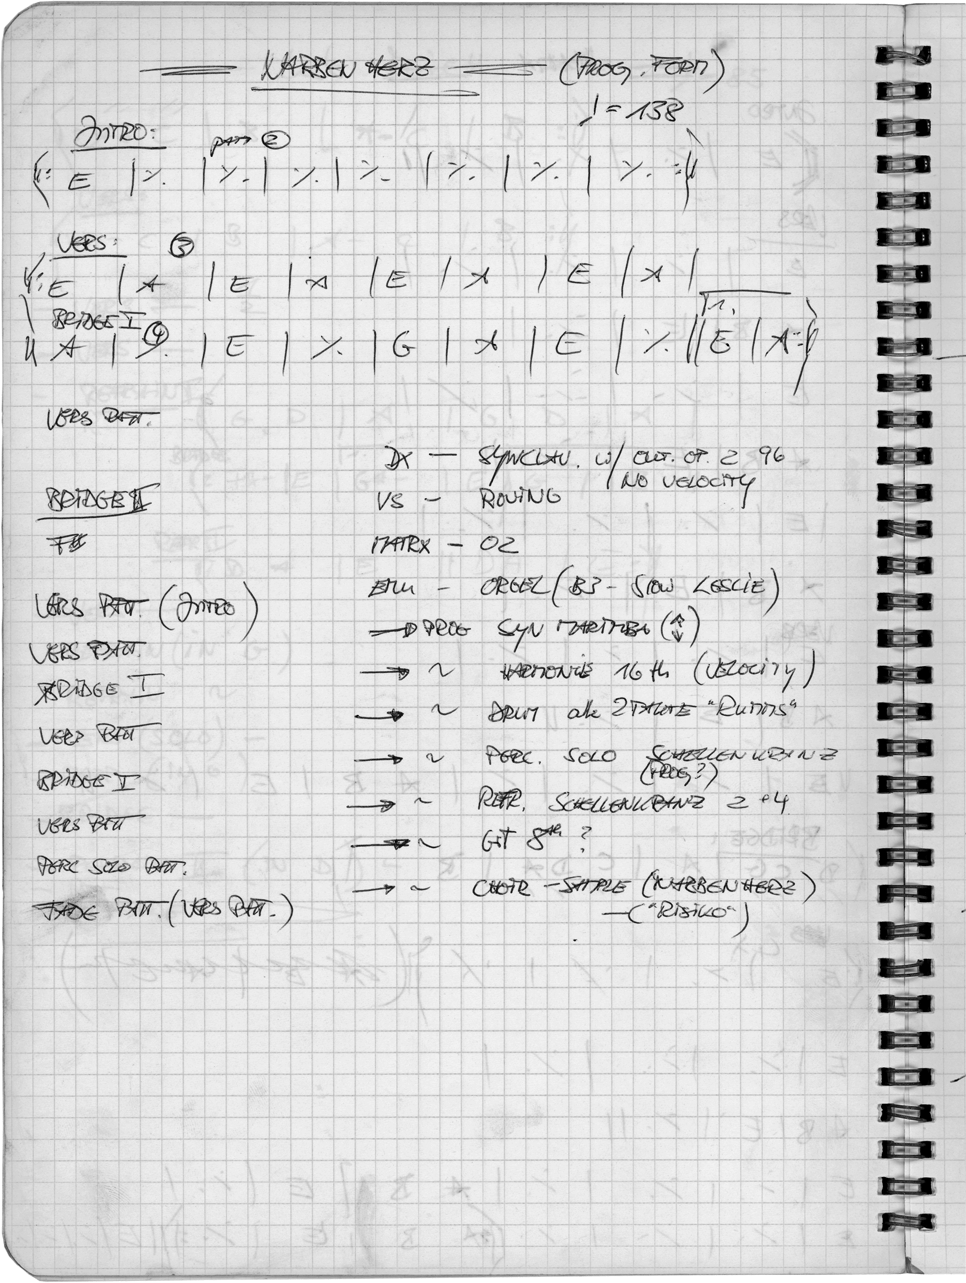 NARBENHERZ (PROG. FORM)
♩ = 138
INTRO:
patt ②
‖: E | ٪ | ٪ | ٪ | ٪ | ٪ | ٪ | ٪ :‖
VERS: ③
‖: E | A | E | A | E | A | E | A |
BRIDGE I ④ 1.
‖ A | ٪ | E | ٪ | G | A | E | ٪ ‖ E | A :‖
VERS PATT.
DX — SYNCLAV. W/ OUT. OP. 2 96
NO VELOCITY
BRIDGE II VS — ROVING
MATRX — 02
EMU — ORGEL (B3 - SLOW LESLIE)
VERS PATT. (INTRO)
→ PROG SYN MARIMBA (↕)
VERS PATT.
→ ~ HARMONIE 16th (VELOCITY)
BRIDGE I
→ ~ DRUM alle 2 TAKTE "RUMMS"
VERS PATT
→ ~ PERC. SOLO SCHELLENKRANZ
(PROG?)
BRIDGE I
→ ~ REFR. SCHELLENKRANZ 2 + 4
VERS PATT
→ ~ GIT 8th ?
PERC SOLO PATT.
→ ~ CHOIR - SAMPLE (NARBENHERZ)
FADE PATT. (VERS PATT.)
— ("RISIKO")